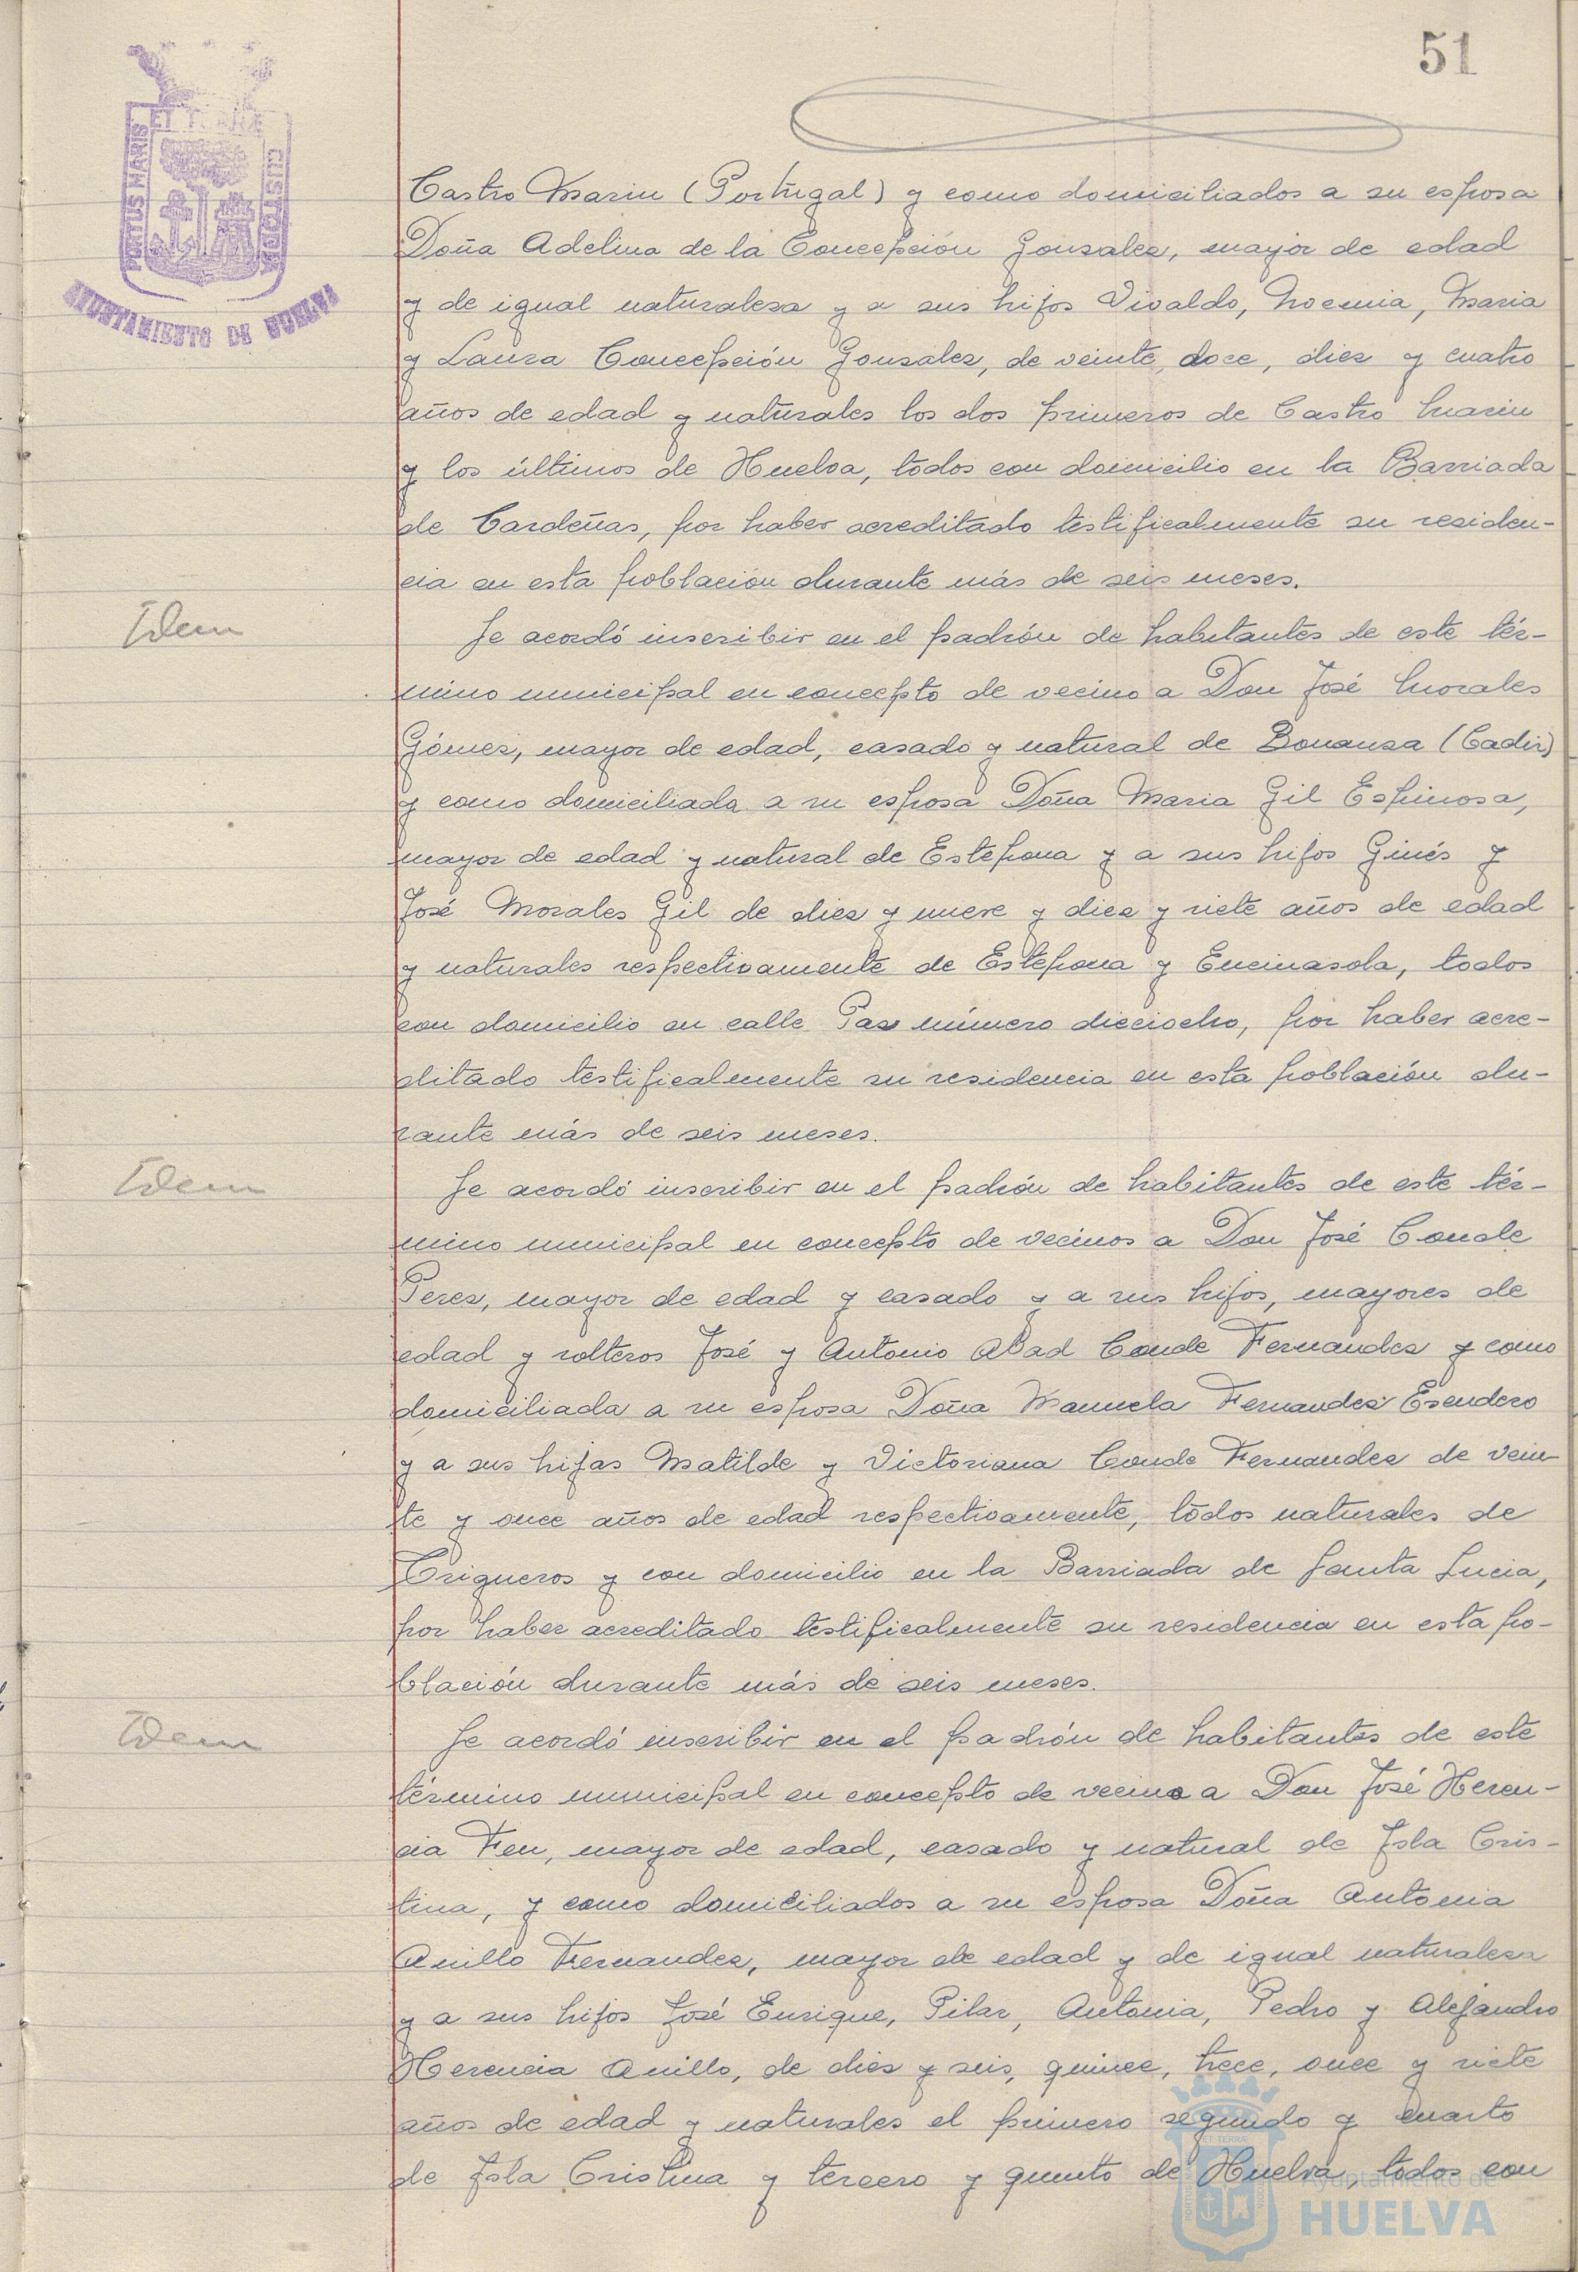 51
PORTUS MARIS ET TERRÆ CUSTODIA
AYUNTAMIENTO DE HUELVA
Castro Marin (Portugal) y como domiciliados a su esposa
Doña Adelina de la Concepción Gonzalez, mayor de edad
y de igual naturaleza y a sus hijos Vivaldo, Noemia, Maria
y Laura Concepción Gonzalez, de veinte, doce, diez y cuatro
años de edad y naturales los dos primeros de Castro Marin
y los últimos de Huelva, todos con domicilio en la Barriada
de Cardeñas, por haber acreditado testificalmente su residen-
cia en esta población durante más de seis meses.
Idem
Se acordó inscribir en el padrón de habitantes de este tér-
mino municipal en concepto de vecino a Don José Morales
Gómez, mayor de edad, casado y natural de Bonanza (Cadiz)
y como domiciliada a su esposa Doña Maria Gil Espinosa,
mayor de edad y natural de Estepona y a sus hijos Ginés y
José Morales Gil de diez y nueve y diez y siete años de edad
y naturales respectivamente de Estepona y Encinasola, todos
con domicilio en calle Paz número dieciocho, por haber acre-
ditado testificalmente su residencia en esta población du-
rante más de seis meses.
Idem
Se acordó inscribir en el padrón de habitantes de este tér-
mino municipal en concepto de vecinos a Don José Conde
Perez, mayor de edad y casado y a sus hijos, mayores de
edad y solteros José y Antonio Abad Conde Fernandez y como
domiciliada a su esposa Doña Manuela Fernandez Escudero
y a sus hijas Matilde y Victoriana Conde Fernandez de vein-
te y once años de edad respectivamente, todos naturales de
Trigueros y con domicilio en la Barriada de Santa Lucia,
por haber acreditado testificalmente su residencia en esta po-
blación durante más de seis meses.
Idem
Se acordó inscribir en el padrón de habitantes de este
término municipal en concepto de vecino a Don José Heren-
cia Feu, mayor de edad, casado y natural de Isla Cris-
tina, y como domiciliados a su esposa Doña Antonia
Anillo Fernandez, mayor de edad y de igual naturaleza
y a sus hijos José Enrique, Pilar, Antonia, Pedro y Alejandro
Herencia Anillo, de diez y seis, quince, trece, once y siete
años de edad y naturales el primero segundo y cuarto
de Isla Cristina y tercero y quinto de Huelva, todos con
Ayuntamiento de
HUELVA